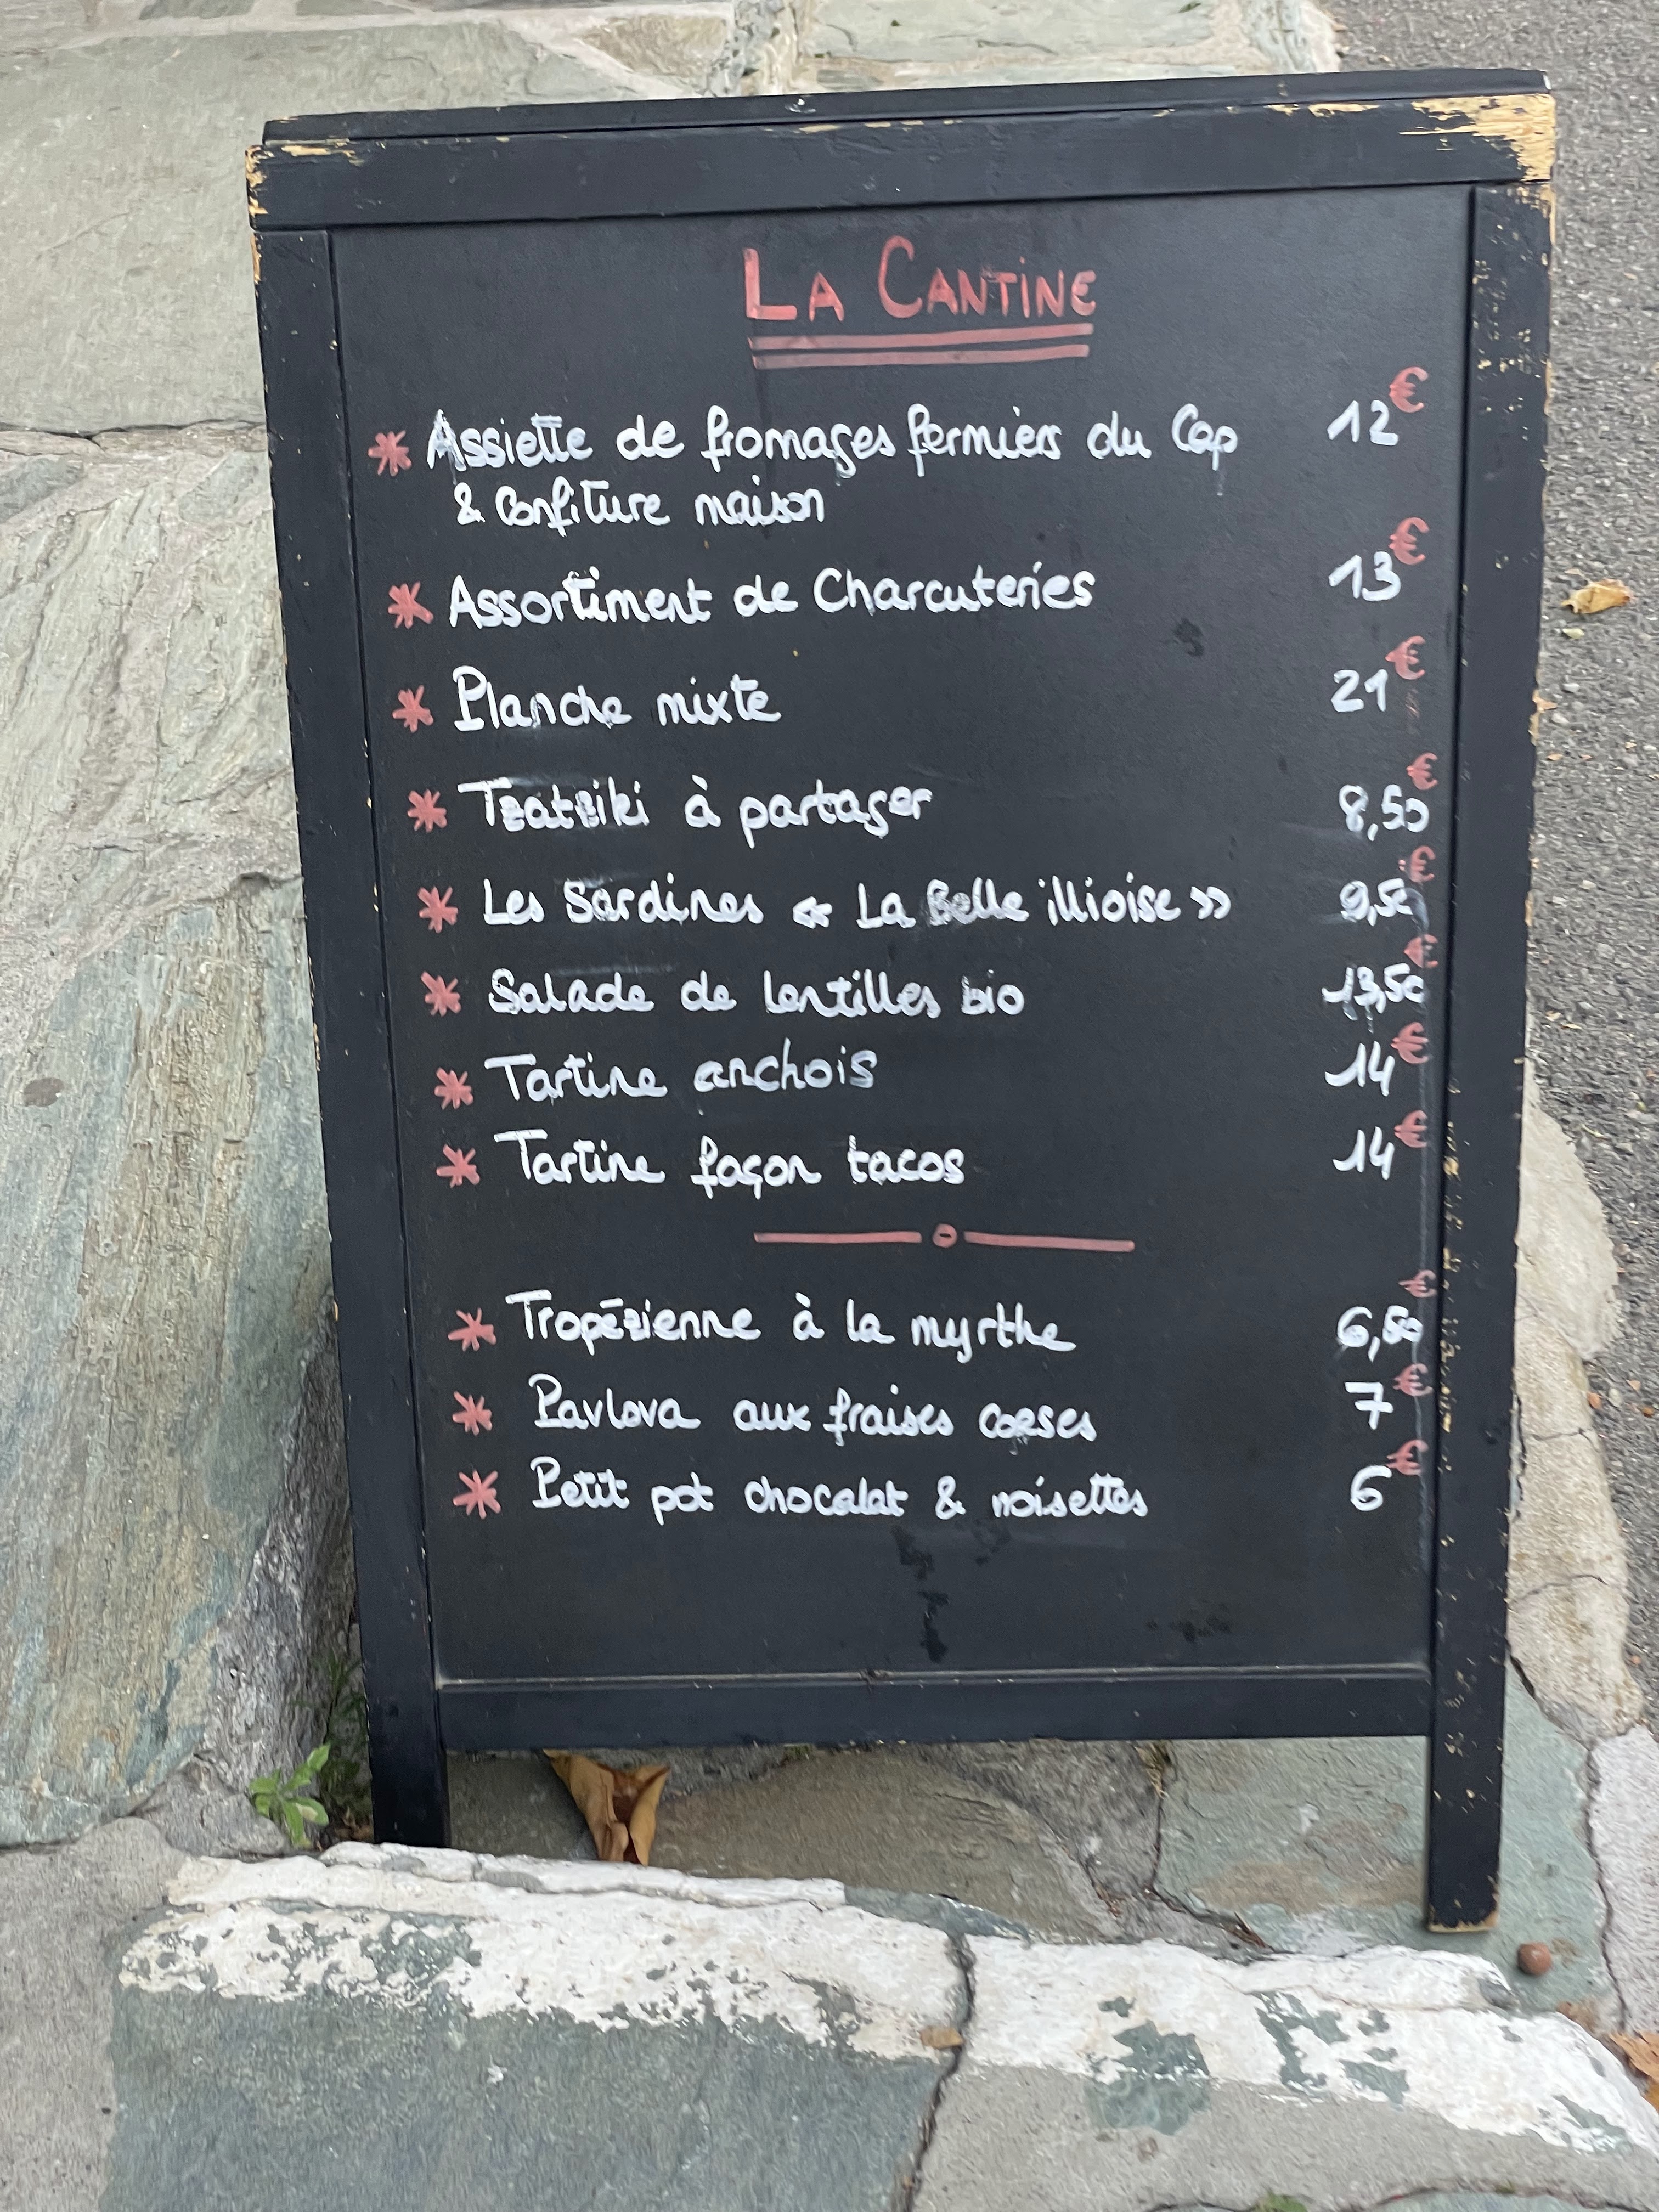 LA CANTINE
* Assiette de fromages fermiers du Cap 12€
& Confiture maison
* Assortiment de Charcuteries 13€
* Planche mixte 21€
* Tzatziki à partager 8,50€
* Les Sardines « La Belle illioise » 9,50€
* Salade de lentilles bio 13,50€
* Tartine anchois 14€
* Tartine façon tacos 14€
* Tropézienne à la myrthe 6,50€
* Pavlova aux fraises corses 7€
* Petit pot chocolat & noisettes 6€